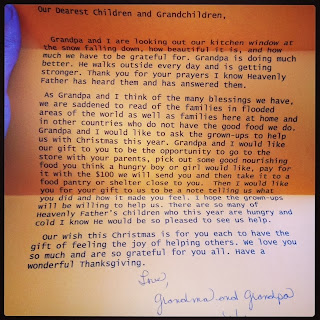 Our Dearest Children and Grandchildren,
Grandpa and I are looking out our kitchen window at
the snow falling down, how beautiful it is, and how
much we have to be grateful for. Grandpa is doing much
better. He walks outside every day and is getting
stronger. Thank you for your prayers I know Heavenly
Father has heard them and has answered them.
As Grandpa and I think of the many blessings we have,
we are saddened to read of the families in flooded
areas of the world as well as families here at home and
in other countries who do not have the good food we do.
Grandpa and I would like to ask the grown-ups to help
us with Christmas this year. Grandpa and I would like
our gift to you to be the opportunity to go to the
store with your parents, pick out some good nourishing
food you think a hungry boy or girl would like, pay for
it with the $100 we will send you and then take it to a
food pantry or shelter close to you. Then I would like
you for your gift to us to be a note telling us what
you did and how it made you feel. I hope the grown-ups
will be willing to help us. There are so many of
Heavenly Father's children who this year are hungry and
cold I know He would be so pleased to see us help.
Our wish this Christmas is for you each to have the
gift of feeling the joy of helping others. We love you
so much and are so grateful for you all. Have a
wonderful Thanksgiving.
Love,
Grandma and Grandpa